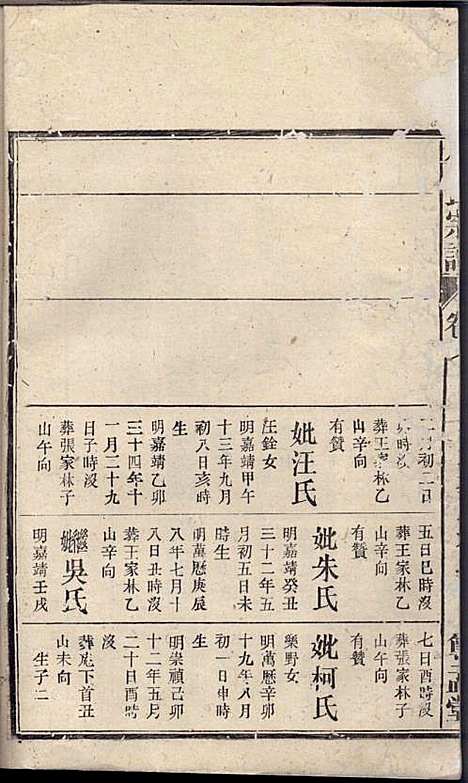 宗譜
卷
初二日
時沒
葬王家林乙
山辛向
有贊
妣汪氏
汪銓女
明嘉靖甲午
十三年九月
初八日亥時
生
明嘉靖乙卯
三十四年十
一月二十九
日子時沒
葬張家林子
山午向
五日巳時沒
葬王家林乙
山辛向
有贊
妣朱氏
明嘉靖癸丑
三十二年五
月初五日未
時生
明萬曆庚辰
八年七月十
八日丑時沒
葬王家林乙
山辛向
繼妣吳氏
明嘉靖壬戌
七日酉時沒
葬張家林子
山午向
有贊
妣柯氏
樂野女
明萬曆辛卯
十九年八月
初一日申時
生
明崇禎己卯
十二年五月
二十日酉時
沒
葬嵗下首丑
山未向
生子二